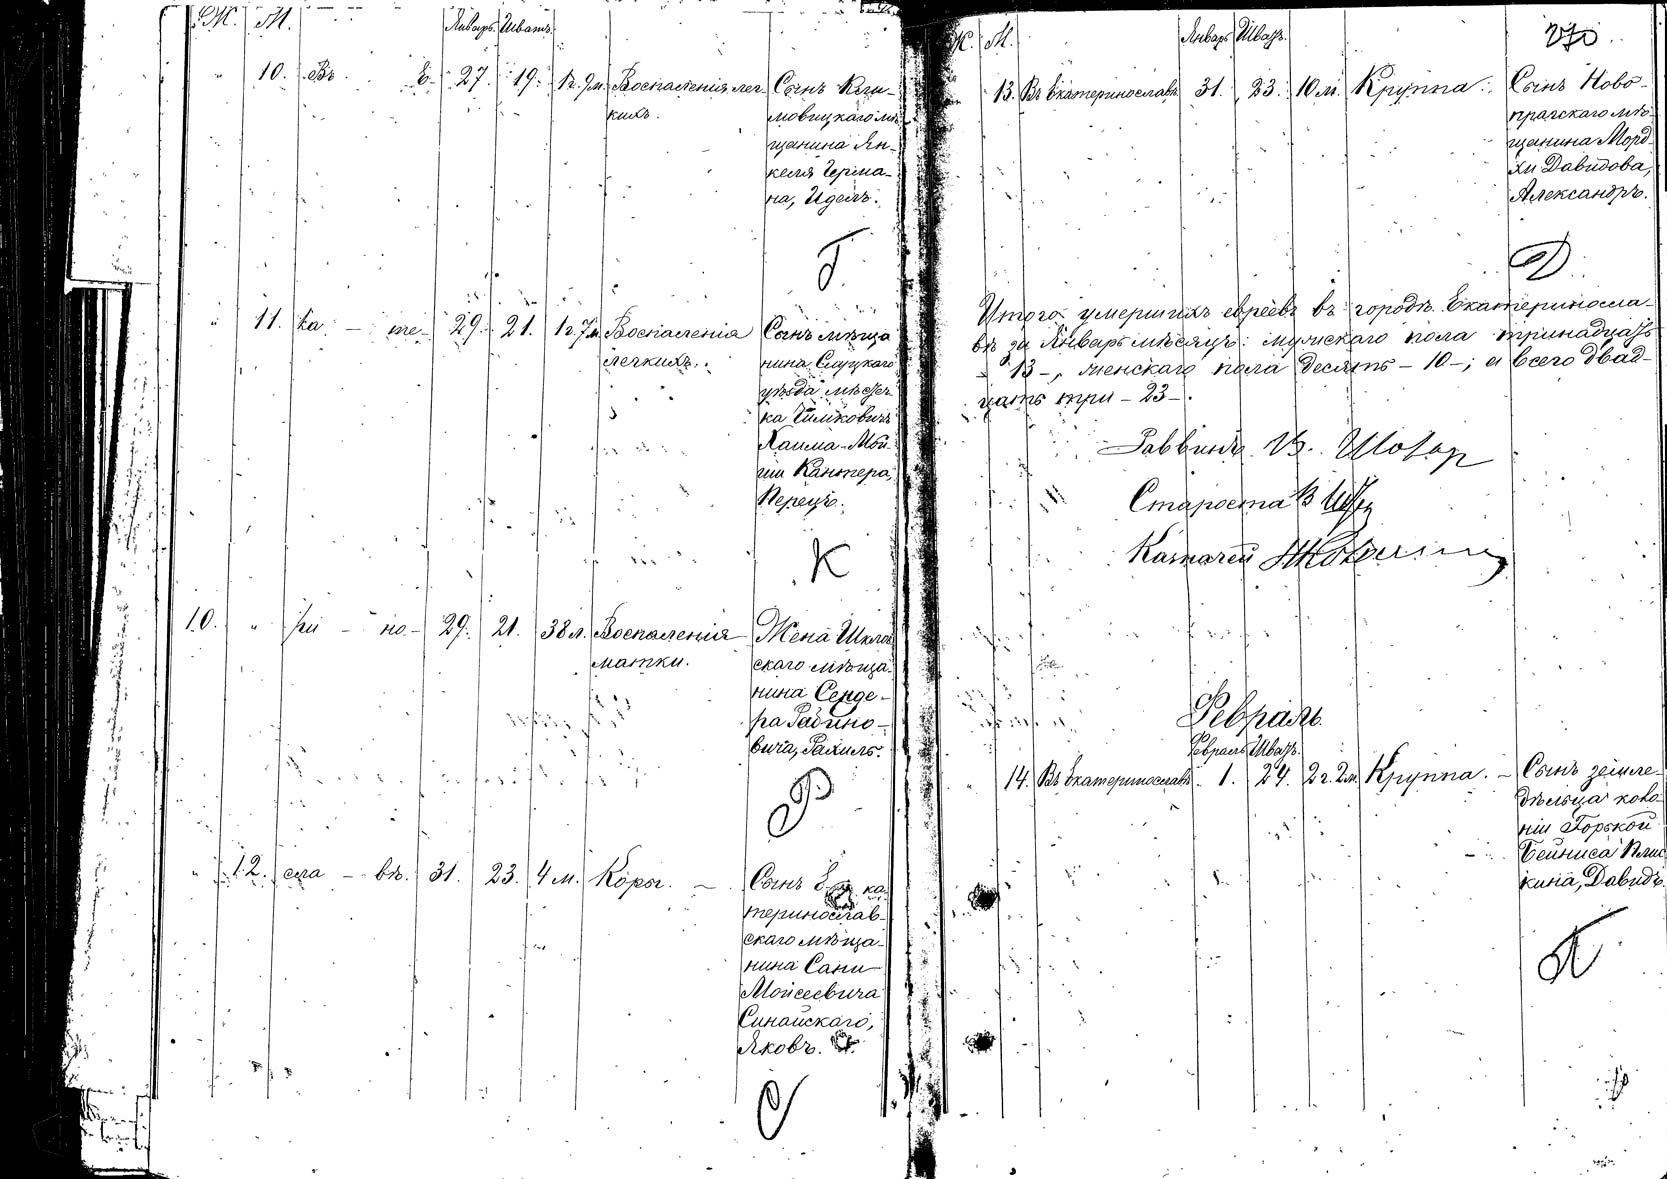 Ж. М. Январь Шватъ.
10. Въ Е- 27. 19. 1г. 9м. Воспаленія лег-
кихъ.
Сынъ Кли-
мовицкаго мѣ-
щанина Ян-
келя Герма-
на, Идель.
Г
11. ка - те- 29. 21. 1г. 7м. Воспаленія
легкихъ.
Сынъ мѣща
нина Слуцкаго
уѣзда мѣстеч
ка Тимковичъ
Хаима-Мой-
ши Кантера,
Перецъ.
К
10. " ри - но- 29. 21. 38 л. Воспаленія
матки.
Жена Шклов
скаго мѣща-
нина Сенде-
ра Рабино-
вича, Рахиль.
Р
" 12. сла - вѣ. 31. 23. 4 м. Коры. -
Сынъ Ека
теринослав-
скаго мѣща-
нина Сани
Мойсеевича
Синайскаго,
Яковъ.
С
Ж. М. Январь Шватъ. 270.
13. Въ Екатеринославѣ 31. 23. 10 м. Круппа.
Сынъ Ново-
прагскаго мѣ-
щанина Морд
хи Давидова,
Александръ.
Д
Итого умершихъ евреевъ въ городѣ Екатериносла-
вѣ за Январь мѣсяцъ: мужскаго пола тринадцать
- 13 -, женскаго пола десять - 10 -; а всего двад-
цать три - 23 -.
Раввинъ В. Шовар
Староста В
Казначей
Февраль.
Февраль Шватъ.
14. Въ Екатеринославѣ. 1. 24. 2 г. 2 м. Круппа. -
Сынъ земле-
дѣльца коло-
ніи Горькой
Бейниса Плис
кина, Давидъ.
П